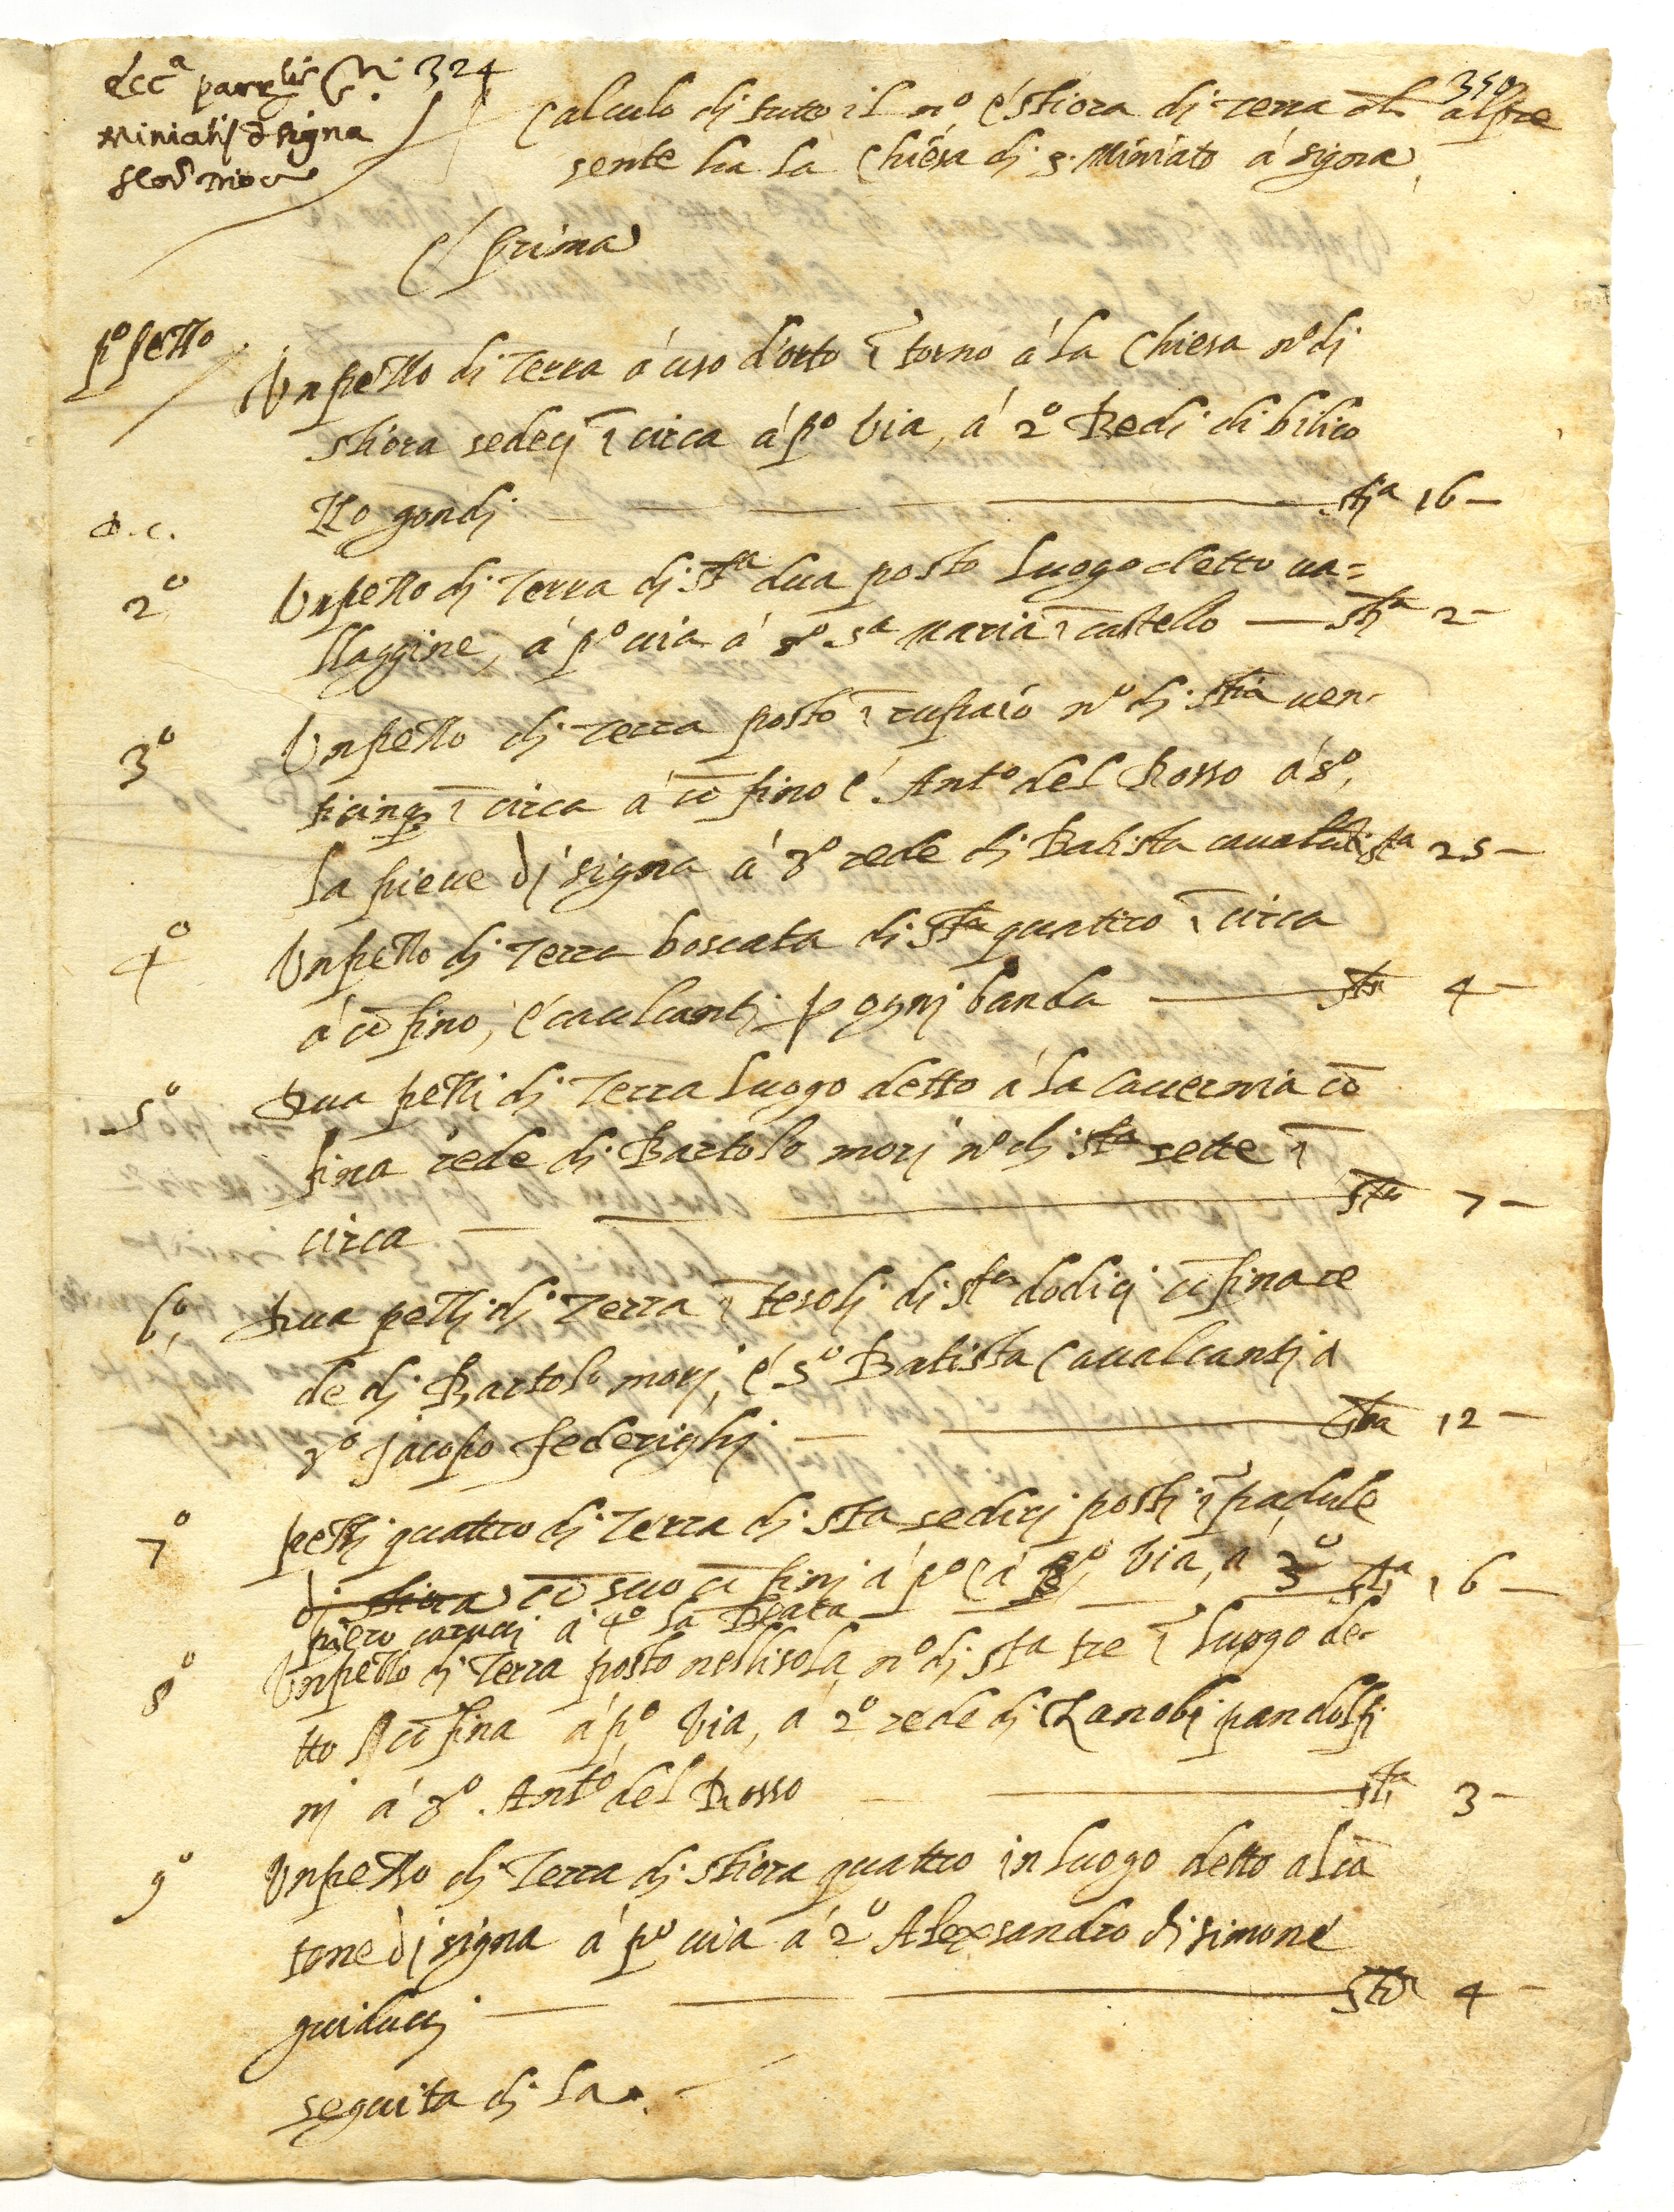 324
350
eccª parrlis S.ti
Miniatis d signa
flor. dioc.
Calculo di tutto il nº é stiora di terra ch alpre
sente ha la Chiesa di S. Miniato á signa
É prima
pº pezzo
Un pezzo di Terra á uso d'orto ī torno á la Chiesa nº di
stiora sedeci ī circa á pº Via, á 2º Redi di bilico
zzo gondi — stª 16 —
2º
Un pezzo di Terra di stª dua posto luogo detto ua=
llaggine, á pº uia á 2º Sª Maria ī castello — stª 2 —
3º
Un pezzo di Terra posto ī rupaio nº di stia uen-
ticinq ī circa á cōfino é Antº del Rosso á 2º,
la pieue di signa á 3º rede di Batista caualcāti stª 25 —
4º
Un pezzo di Terra boscata di sta quattro ī circa
á cōfino, é caulcanti p ogni banda — sta 4 —
5º
Dua pezzi di Terra luogo detto á la Cauernia cō
fina rede di Bartolo mori nº di sta sette ī
circa — sta 7 —
6º
Dua pezzi di Terra ī tesoli di sta dodici cōfina re
de di Bartolo mori, é 2º Batista Caualcanti á
3º Jacopo Federighi — sta 12 —
7º
pezzi quattro di Terra di sta sedici posti ī padule
di stiora cō suo cōfini á pº é á 2º Via, á 3º stª 16 —
piero carucci á 4º la Beata
8º
Un pezzo di Terra posto nell isola nº di sta tre ī luogo de-
tto cōfina á pº Via, á 2º rede di Zanobi pandolfi
ni á 3º Antº del Rosso — stª 3 —
9º
Un pezzo di Terra di stiora quattro in luogo detto al cā
tone di signa á pº uia á 2º Alexsandro di simone
guiducci — stª 4 —
seguita di la